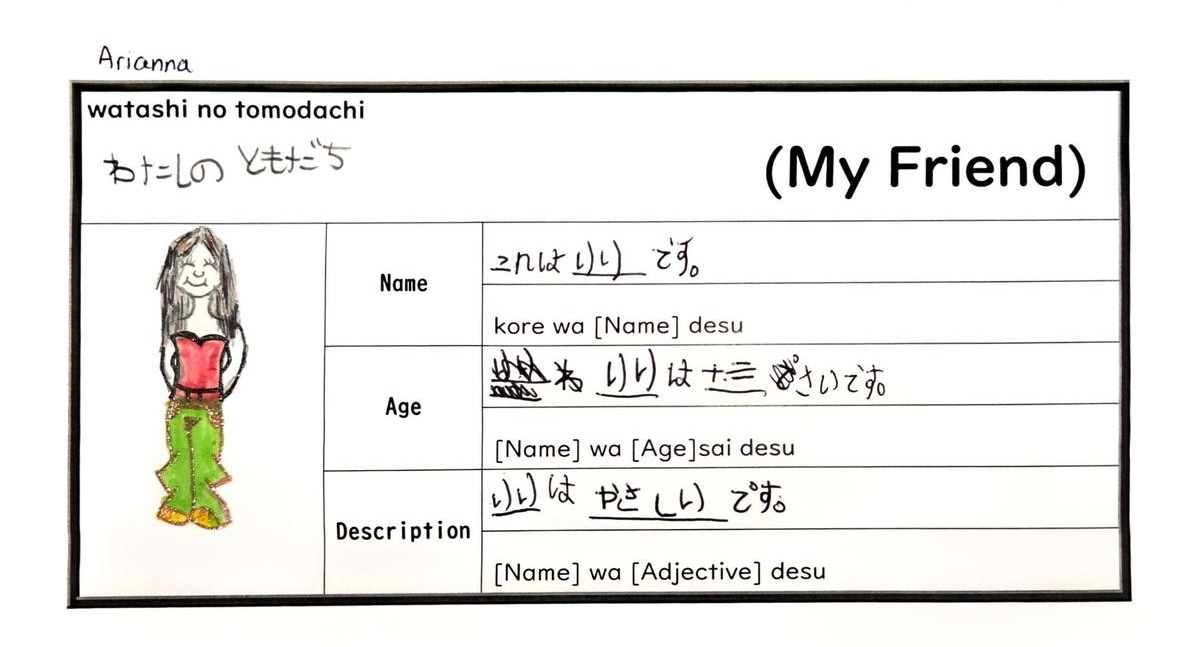 Arianna
watashi no tomodachi
わたしの ともだち
(My Friend)
Name
これは りり です。
kore wa [Name] desu
Age
りり は 十三 さいです。
[Name] wa [Age]sai desu
Description
りり は やさしい です。
[Name] wa [Adjective] desu